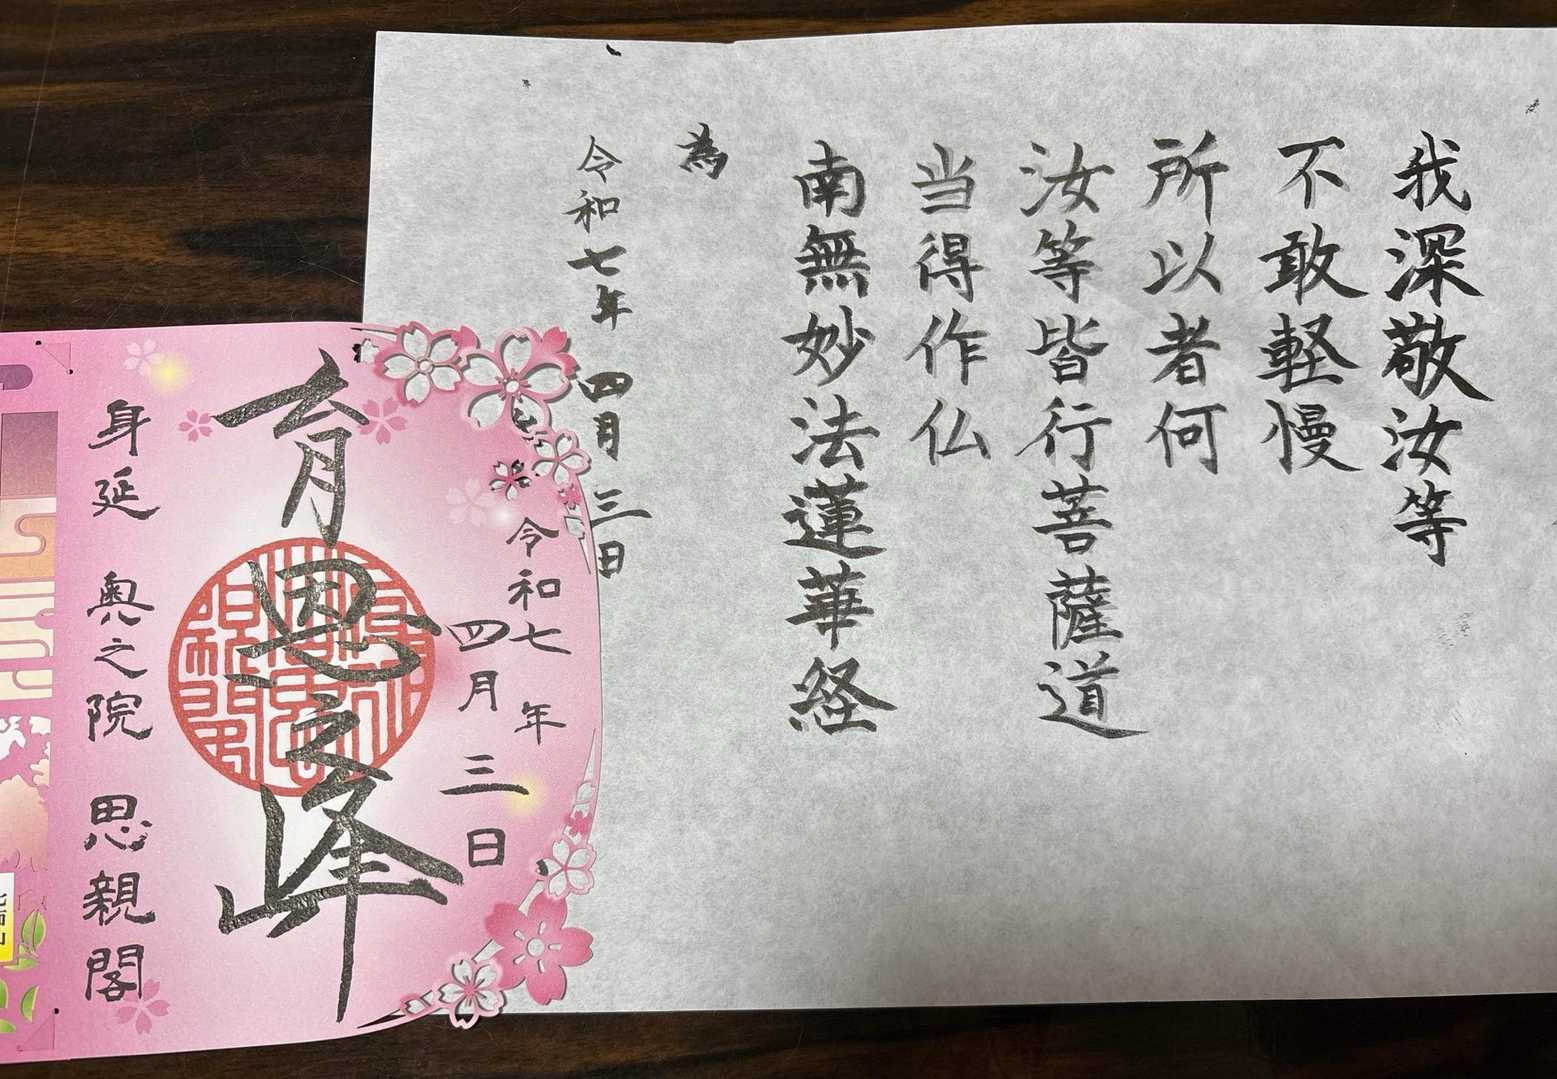 我深敬汝等
不敢軽慢
所以者何
汝等皆行菩薩道
当得作仏
南無妙法蓮華経
為
令和七年 四月 三日
令和七年
四月三日
育恩之峰
身延 奥之院 思親閣